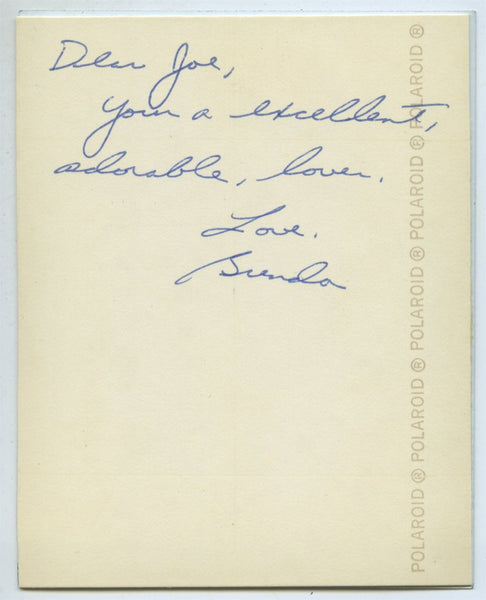 Dear Joe,
Your a excellent,
adorable, lover.
Love.
Brenda
POLAROID® POLAROID® POLAROID® POLAROID®